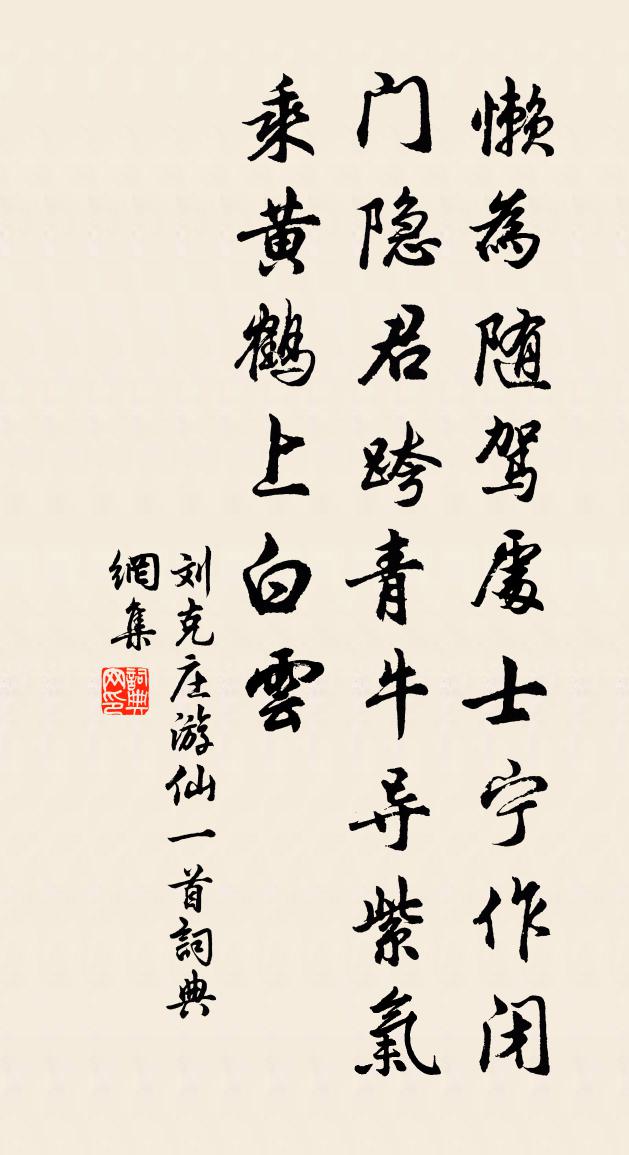 懒為随驾處士宁作闭
门隐君跨青牛导紫氣
乘黄鹤上白雲
刘克庄游仙一首詞典
網集
詞典
网印